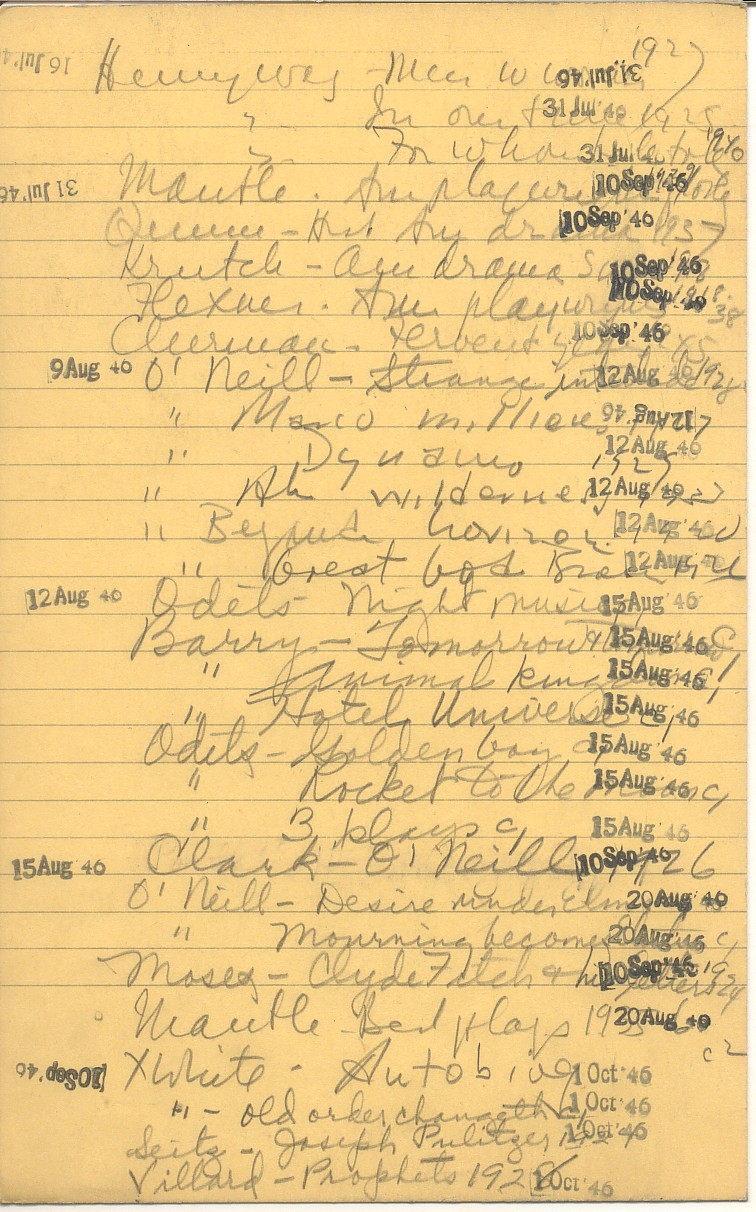 16 Jul '46 Hemyway - Men w 1927 31 Jul '46
" In our time 1925 31 Jul '46
" For whom 1940 31 Jul '46
31 Jul '46 Mantle. Am playwrights 10 Sep '46
Quinn - Hist Am drama 1937 10 Sep '46
Krutch - Am drama 10 Sep '46
Flexner. Am playwrights 1918-38 10 Sep '46
Clurman. Fervent years 45 10 Sep '46
9 Aug 46 O'Neill - Strange interlude 1928 12 Aug 46
" Marco millions 1927 12 Aug '46
" Dynamo 1929 12 Aug 46
" Ah wilderness 1933 12 Aug 46
" Beyond horizon 12 Aug '46
" Great god Brown 1926 12 Aug '46
12 Aug 46 Odets - Night music 15 Aug '46
Barry - Tomorrow & 15 Aug '46
" Animal kingdom c1 15 Aug '46
" Hotel Universe c1 15 Aug '46
Odets - Golden boy c1 15 Aug '46
" Rocket to the moon c1 15 Aug '46
" 3 plays c1 15 Aug '46
15 Aug '46 Clark - O'Neill 1926 10 Sep '46
O'Neill - Desire under Elms 20 Aug '46
" Mourning becomes c1 20 Aug '46
Moses - Clyde Fitch & his letters 1924 10 Sep '46
Mantle Best plays 20 Aug 46
c2
10 Sep '46 XWhite - Autobiog 1 Oct '46
" - old order changeth 1 Oct '46
Seitz - Joseph Pulitzer 1 Oct '46
Villard - Prophets 1 Oct '46